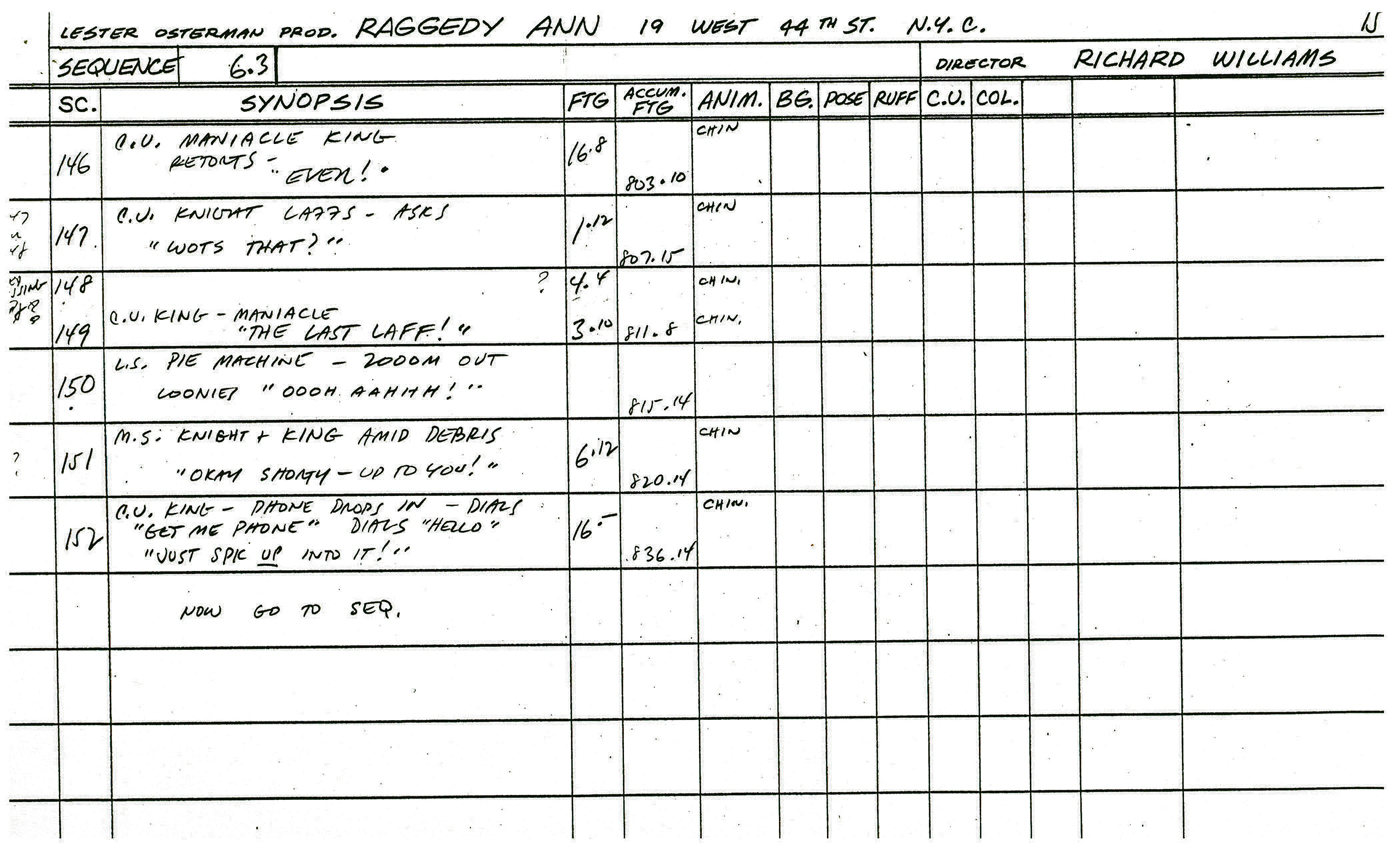 LESTER OSTERMAN PROD. RAGGEDY ANN 19 WEST 44TH ST. N.Y.C. 15
SEQUENCE 6.3 DIRECTOR RICHARD WILLIAMS
SC. SYNOPSIS FTG ACCUM. FTG ANIM. BG. POSE RUFF C.U. COL.
146 C.U. MANIACLE KING 16.8 CHIN
RETORTS -
"EVER!" 803.10
147. C.U. KNIGHT LAFFS - ASKS 1.12 CHIN
"WOTS THAT?" 807.15
148 ? 4.4 CHIN.
149 C.U. KING - MANIACLE
"THE LAST LAFF!" 3.10 811.8 CHIN.
150 L.S. PIE MACHINE - ZOOOM OUT
LOONIES "OOOH AAHHH!" 815.14
151 M.S. KNIGHT + KING AMID DEBRIS 6.12 CHIN
? "OKAY SHORTY - UP TO YOU!" 820.14
152 C.U. KING - PHONE DROPS IN - DIALS 16.- CHIN.
"GET ME PHONE" DIALS "HELLO"
"JUST SPIC UP INTO IT!" 836.14
NOW GO TO SEQ.